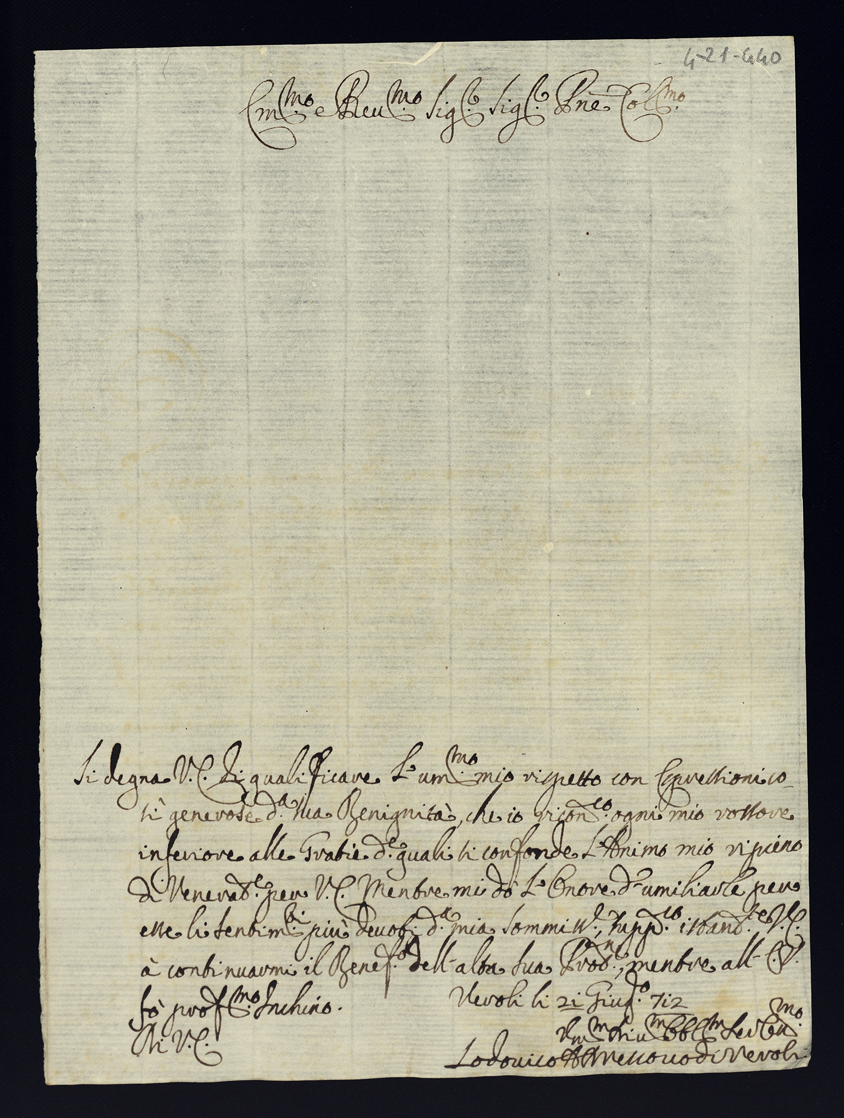 4-21-440
Em.mo e Reu.mo Sig.r Sig.r Pne Col.mo
Si degna V.E. di qualificare l'um.mo mio rispetto con Espressioni co-
sì generose d.a sua Benignità, che io ricon.co ogni mio rossore
inferiore alle Gratie d.e quali si confonde l'Animo mio ripieno
di Venerat.e per V.E. Mentre mi dò l'Onore d'umiliarle per
esse li sentim.ti più devoti d.a mia Sommiss.e, supp.co istant.te V.E.
à continuarmi il Benef.o dell'alta sua Prot.ne, mentre all'E.V.
fò prof.mo Inchino.
Veroli li 21 Giug.o 712
Di V.E.
Um.mo Obbl.mo Ser.
Lodovico Vescovo di Veroli